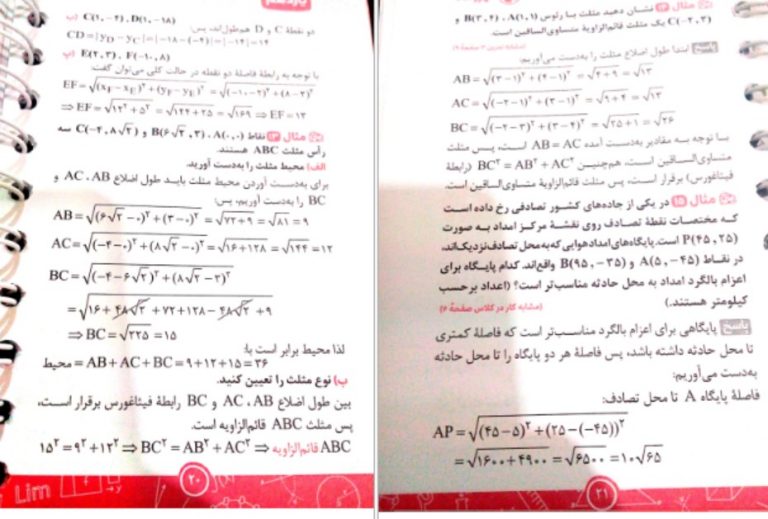 یازدهم
پ) C(۱,-۴) , D(۱,-۱۸)
دو نقطهٔ C و D هم‌طول‌اند، پس:
CD = |y_D - y_C| = |-۱۸-(-۴)| = |-۱۴| = ۱۴
ت) E(۲,۳) , F(-۱۰,۸)
با توجه به رابطهٔ فاصلهٔ دو نقطه در حالت کلی می‌توان گفت:
EF = √((x_F - x_E)² + (y_F - y_E)²) = √((-۱۰-۲)² + (۸-۳)²)
⇒ EF = √(۱۲² + ۵²) = √(۱۴۴+۲۵) = √۱۶۹ ⇒ EF = ۱۳
مثال ۱۳ نقاط A(۰,۰) ، B(۶√۲ , ۳) و C(-۴, ۸√۲) سه
رأس مثلث ABC هستند.
الف) محیط مثلث را به‌دست آورید.
برای به‌دست آوردن محیط مثلث باید طول اضلاع AB ، AC و
BC را به‌دست آوریم، پس:
AB = √((۶√۲ - ۰)² + (۳-۰)²) = √(۷۲+۹) = √۸۱ = ۹
AC = √((-۴-۰)² + (۸√۲ - ۰)²) = √(۱۶+۱۲۸) = √۱۴۴ = ۱۲
BC = √((-۴-۶√۲)² + (۸√۲ - ۳)²)
= √(۱۶ + ۴۸√۲ + ۷۲ + ۱۲۸ - ۴۸√۲ + ۹)
⇒ BC = √۲۲۵ = ۱۵
لذا محیط برابر است با:
محیط = AB + AC + BC = ۹+۱۲+۱۵ = ۳۶
ب) نوع مثلث را تعیین کنید.
بین طول اضلاع AB ، AC و BC رابطهٔ فیثاغورس برقرار است،
پس مثلث ABC قائم‌الزاویه است.
۱۵² = ۹² + ۱۲² ⇒ BC² = AB² + AC² ⇒ ABC قائم‌الزاویه
۲۰
Lim
مثال ۱۴ نشان دهید مثلث با رئوس A(۱,۱) ، B(۳,۴) و
C(-۲,۳) یک مثلث قائم‌الزاویهٔ متساوی‌الساقین است.
پاسخ ابتدا طول اضلاع مثلث را به‌دست می‌آوریم:
AB = √((۳-۱)² + (۴-۱)²) = √(۴+۹) = √۱۳
AC = √((-۲-۱)² + (۳-۱)²) = √(۹+۴) = √۱۳
BC = √((-۲-۳)² + (۳-۴)²) = √(۲۵+۱) = √۲۶
با توجه به مقادیر به‌دست آمده AB = AC است، پس مثلث
متساوی‌الساقین است، هم‌چنین BC² = AB² + AC² (رابطهٔ
فیثاغورس) برقرار است، پس مثلث قائم‌الزاویهٔ متساوی‌الساقین است.
مثال ۱۵ در یکی از جاده‌های کشور تصادفی رخ داده است
که مختصات نقطهٔ تصادف روی نقشهٔ مرکز امداد به صورت
P(۴۵,۲۵) است. پایگاه‌های امداد هوایی که به محل تصادف نزدیک‌اند،
در نقاط A(۵,-۴۵) و B(۹۵,-۳۵) واقع‌اند. کدام پایگاه برای
اعزام بالگرد امداد به محل حادثه مناسب‌تر است؟ (اعداد برحسب
کیلومتر هستند.) (مشابه کار در کلاس صفحهٔ ۶)
پاسخ پایگاهی برای اعزام بالگرد مناسب‌تر است که فاصلهٔ کمتری
تا محل حادثه داشته باشد، پس فاصلهٔ هر دو پایگاه را تا محل حادثه
به‌دست می‌آوریم:
فاصلهٔ پایگاه A تا محل تصادف:
AP = √((۴۵-۵)² + (۲۵-(-۴۵))²)
= √(۱۶۰۰+۴۹۰۰) = √۶۵۰۰ = ۱۰√۶۵
۲۱